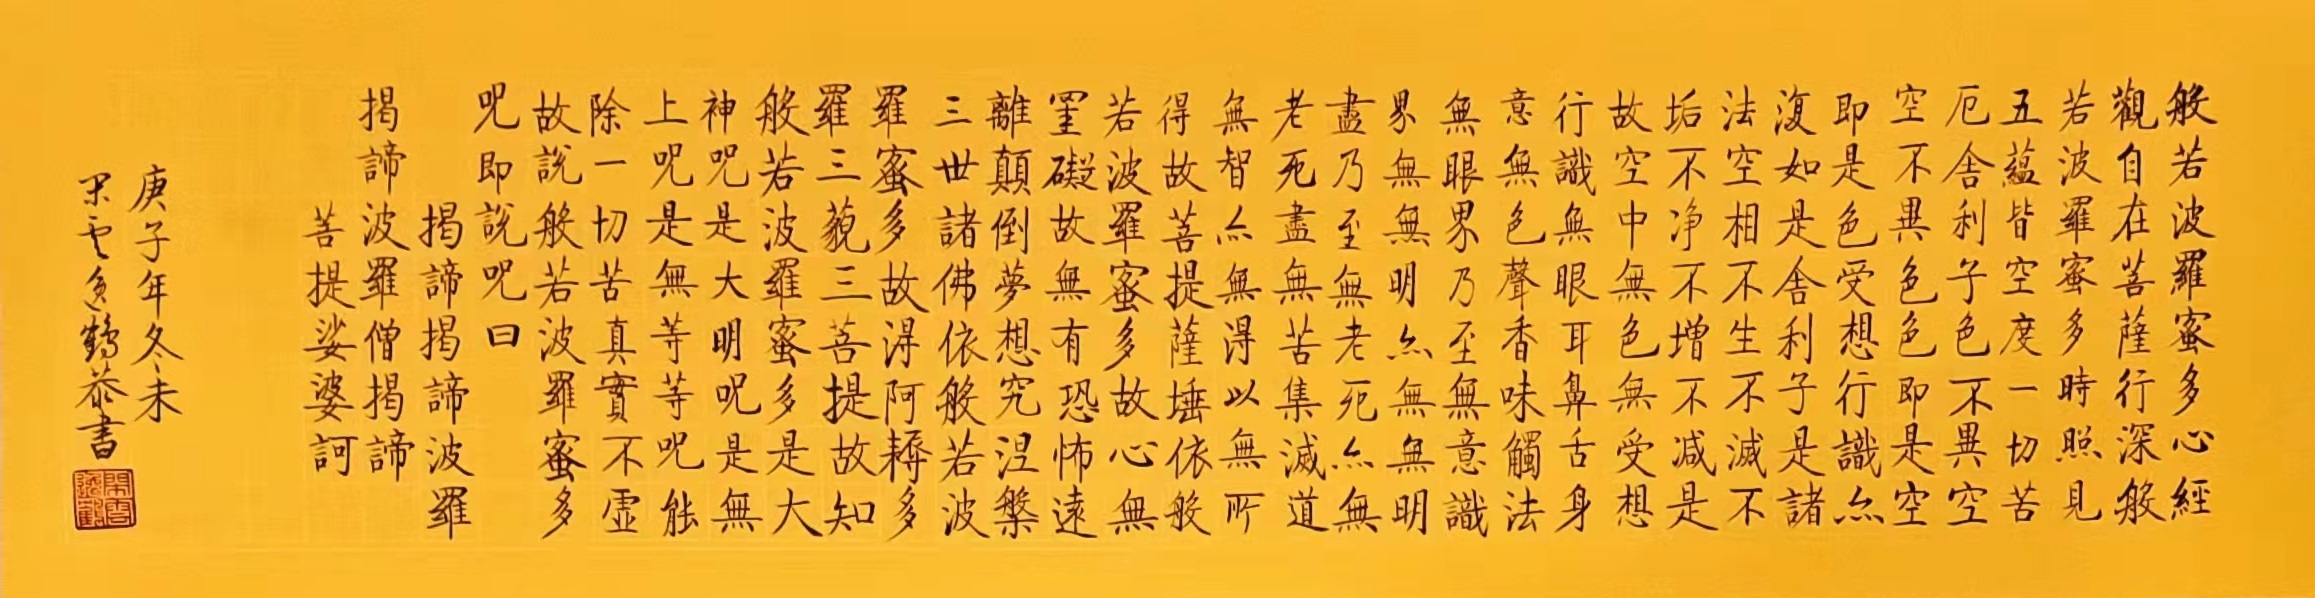 般若波羅蜜多心經
觀自在菩薩行深般
若波羅蜜多時照見
五蘊皆空度一切苦
厄舍利子色不異空
空不異色色即是空
即是色受想行識亦
復如是舍利子是諸
法空相不生不滅不
垢不净不增不减是
故空中無色無受想
行識無眼耳鼻舌身
意無色聲香味觸法
無眼界乃至無意識
界無無明亦無無明
盡乃至無老死亦無
老死盡無苦集滅道
無智亦無得以無所
得故菩提薩埵依般
若波羅蜜多故心無
罣礙故無有恐怖遠
離顛倒夢想究涅槃
三世諸佛依般若波
羅蜜多故得阿耨多
羅三藐三菩提故知
般若波羅蜜多是大
神咒是大明咒是無
上咒是無等等咒能
除一切苦真實不虛
故說般若波羅蜜多
咒即說咒曰
揭諦揭諦波羅
揭諦波羅僧揭諦
菩提娑婆訶
庚子年冬末
鶴恭書